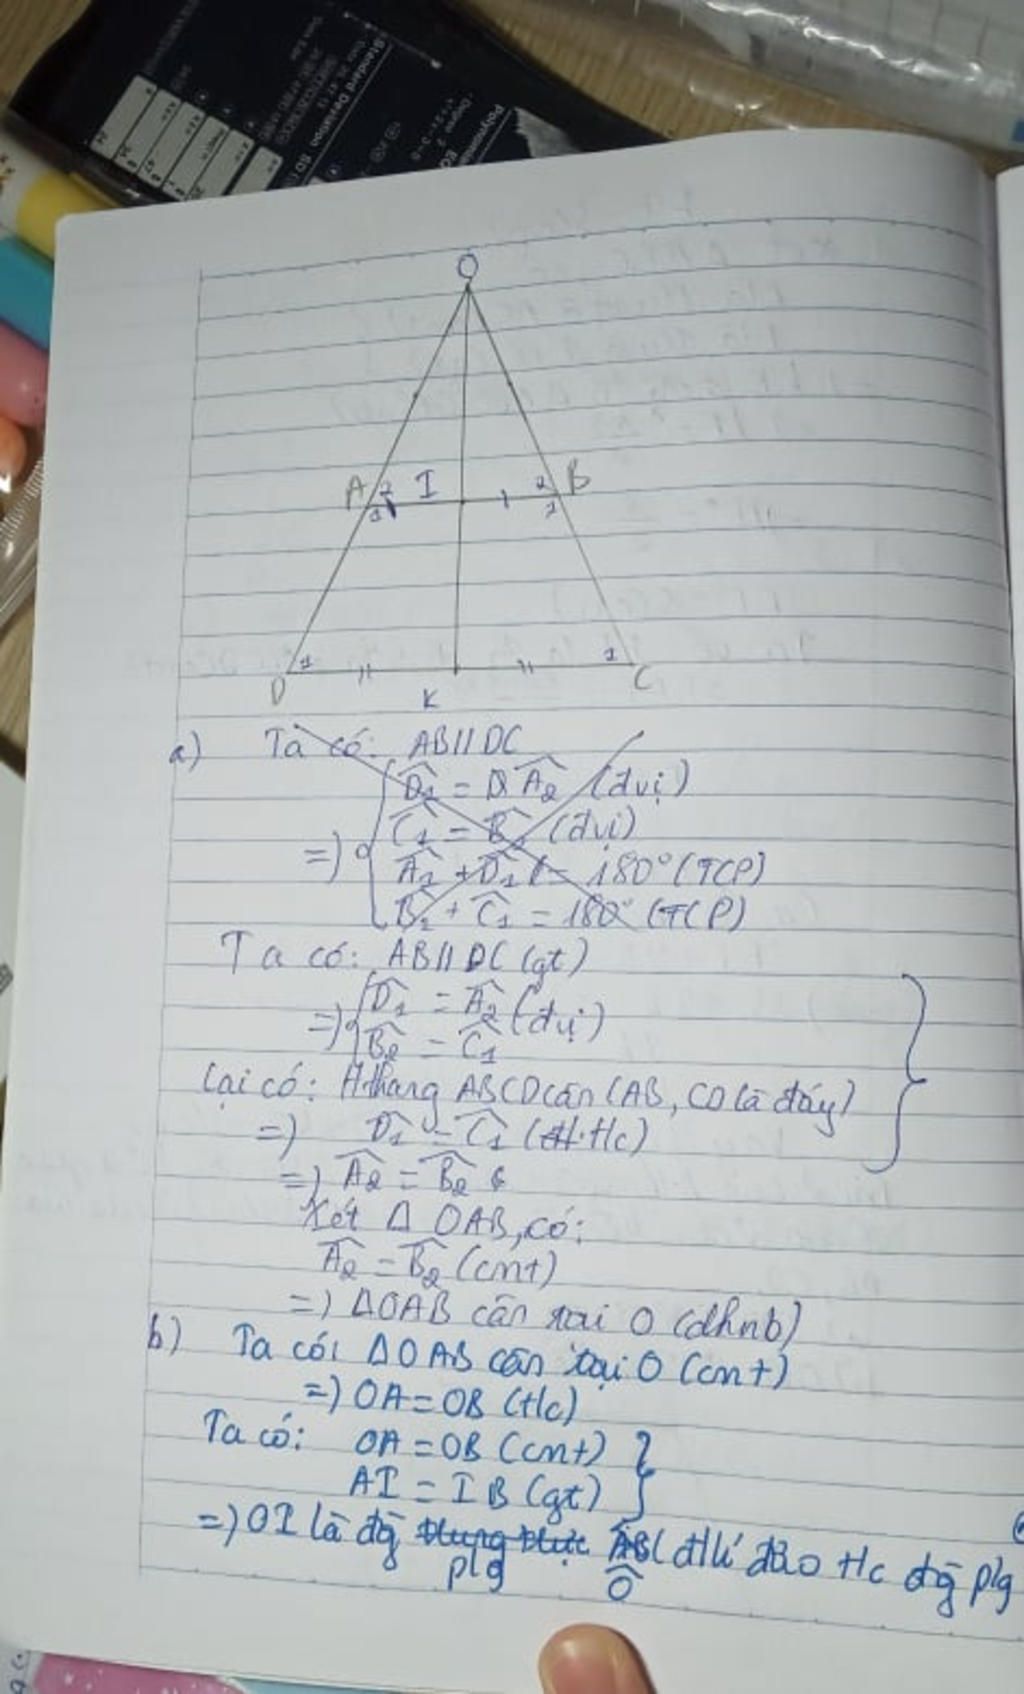 Standard Deviation
O
A 2 I 2 B
1 1
1 1
D K C
a) Ta có: AB//DC
D̂₁ = Â₂ (đvị)
Ĉ₁ = B̂ (đvị)
=) Â₁ + D̂₁ = 180° (TCP)
B̂₁ + Ĉ₁ = 180° (TCP)
Ta có: AB//DC (gt)
=) D̂₁ = Â₂ (đvị)
B̂₂ = Ĉ₁
Lại có: Hthang ABCD cân (AB, CD là đáy)
=) D̂₁ = Ĉ₁ (t/c)
=) Â₂ = B̂₂
Xét Δ OAB, có:
Â₂ = B̂₂ (cmt)
=) ΔOAB cân tại O (dhnb)
b) Ta có: ΔOAB cân tại O (cmt)
=) OA = OB (t/c)
Ta có: OA = OB (cmt)
AI = IB (gt)
=) OI là đg̀ trung trực AB (đlí đảo t/c đg̀ plg
plg Ô